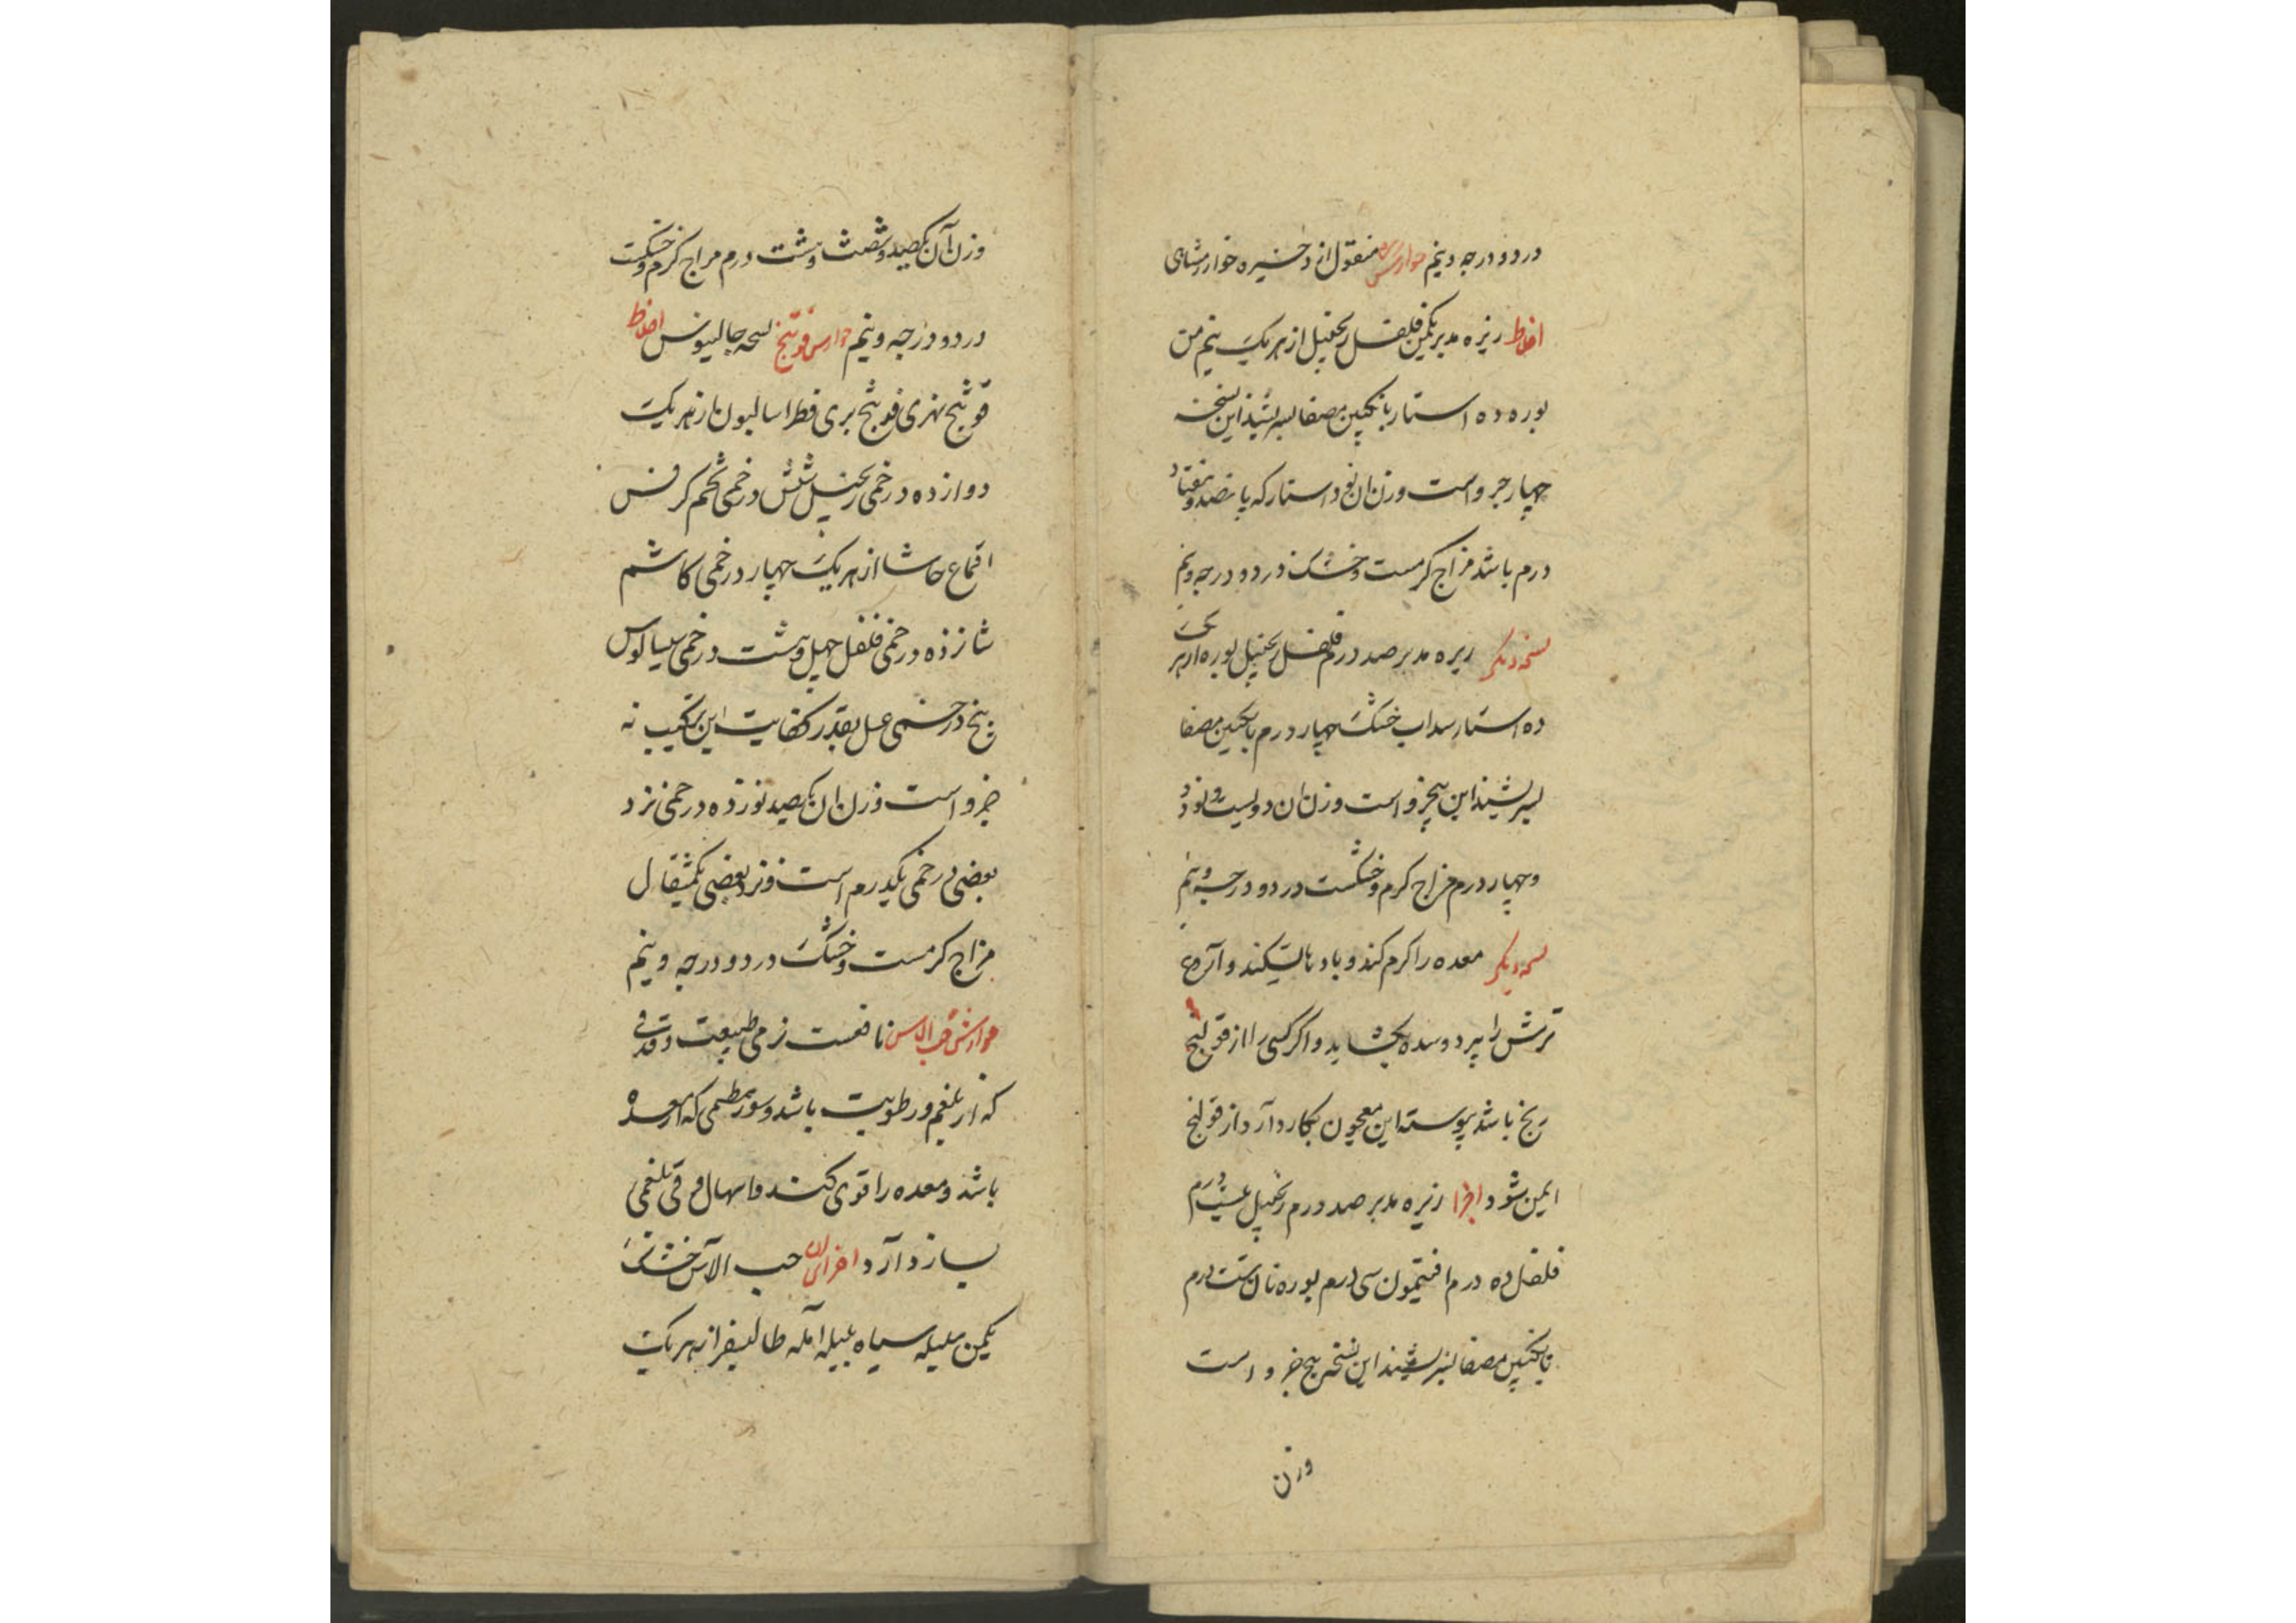 در دو درجه و نیم جوارش منقول از ذخیره خوارزمشاهی
اخلاط زیره مدبر یکمن فلفل زنجبیل از هر یک نیم من
بوره ده استار بانگبین مصفا بسرشند این نسخه
چهار جزو است وزن ان نود استار که پانصد و هفتاد
درم باشد مزاج کرمست و خشک در دو درجه و نیم
نسخه دیکر زیره مدبر صد درم فلفل زنجبیل بوره از هر یک
ده استار سداب خشک چهار درم بانکبین مصفا
بسرشند این پنج جزو است وزن ان دویست و نود
و چهار درم مزاج کرم و خشکست در دو درجه و نیم
نسخه دیکر معده را کرم کند و بادها بشکند و آروغ
ترش را ببرد و سده بکشاید و اکر کسی را از قولنج
رنج باشد پیوسته این معجون بکار دارد از قولنج
ایمن شود اجزا زیره مدبر صد درم زنجبیل بیست درم
فلفل ده درم افتیمون سی درم بوره نان شست درم
بانکبین مصفا بسرشند این نسخه پنج جزو است
وزن
وزن آن یکصد و شصت و هشت درم مزاج کرم و خشکست
در دو درجه و نیم جوارش فوتنج نسخه جالینوس اخلاط
فوتنج نهری فوتنج بری فطراسالیون از هر یک
دوازده درخمی زنجبیل شش درخمی تخم کرفس
اقماع حاشا از هر یک چهار درخمی کاشم
شانزده درخمی فلفل چهل و هشت درخمی سیسالیوس
پنج درخمی عسل بقدر کفایت این ترکیب نه
جزو است وزن ان یکصد نوزده درخمی نزد
بعضی درخمی یکدرم است و نزد بعضی یکمثقال
مزاج کرمست و خشک در دو درجه و نیم
جوارش حب الاس نافعست نرمی طبیعت و قی
که از بلغم و رطوبت باشد و سوء هضمی که از معده
باشد و معده را قوی کند و اسهال و قی بلغمی
باز دارد اجزای ان حب الآس خشک
یکمن هلیله سیاه بلیله آمله طالیسفر از هر یک